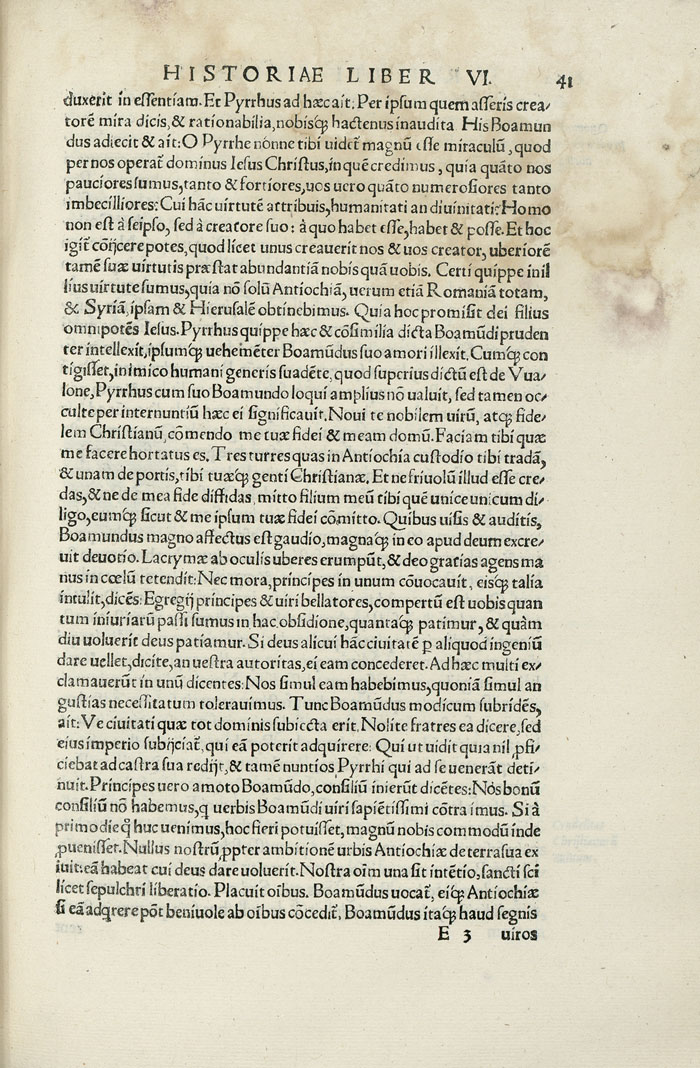 HISTORIAE LIBER VI. 41
duxerit in essentiam. Et Pyrrhus ad hæc ait: Per ipsum quem asseris crea/
torē mira dicis, & rationabilia, nobisq; hactenus inaudita His Boamun
dus adiecit & ait: O Pyrrhe nonne tibi uidet̃ magnū esse miraculū, quod
per nos operat̃ dominus Iesus Christus, in quē credimus, quia quāto nos
pauciores sumus, tanto & fortiores, uos uero quāto numerosiores tanto
imbecilliores: Cui hāc uirtutē attribuis, humanitati an diuinitati: Homo
non est à seipso, sed à creatore suo: à quo habet esse, habet & posse. Et hoc
igit̃ cōijcere potes, quod licet unus creauerit nos & uos creator, uberiorē
tamē suæ uirtutis præstat abundantiā nobis quā uobis. Certi quippe in il
lius uirtute sumus, quia nō solū Antiochiā, uerum etiā Romaniā totam,
& Syriā, ipsam & Hierusalē obtinebimus. Quia hoc promisit dei filius
omnipotēs Iesus. Pyrrhus quippe hæc & cōsimilia dicta Boamūdi pruden
ter intellexit, ipsumq; uehemēter Boamūdus suo amori illexit. Cumq; con
tigisset, inimico humani generis suadēte, quod superius dictū est de Vua/
lone, Pyrrhus cum suo Boamundo loqui amplius nō ualuit, sed tamen oc/
culte per internuntiū hæc ei significauit. Noui te nobilem uirū, atq; fide/
lem Christianū, cōmendo me tuæ fidei & meam domū. Faciam tibi quæ
me facere hortatus es. Tres turres quas in Antiochia custodio tibi tradā,
& unam de portis, tibi tuæq; genti Christianæ. Et ne friuolū illud esse cre/
das, & ne de mea fide diffidas, mitto filium meū tibi quē unice unicum di/
ligo, eumq; sicut & me ipsum tuæ fidei cōmitto. Quibus uisis & auditis,
Boamundus magno affectus est gaudio, magnaq; in eo apud deum excre/
uit deuotio. Lacrymæ ab oculis uberes erumpūt, & deo gratias agens ma
nus in cœlū tetendit: Nec mora, principes in unum cōuocauit, eisq; talia
intulit, dicēs: Egregij principes & uiri bellatores, compertū est uobis quan
tum iniuriarū passi sumus in hac obsidione, quantaq; patimur, & quàm
diu uoluerit deus patiamur. Si deus alicui hāc ciuitatē ꝑ aliquod ingeniū
dare uellet, dicite, an uestra autoritas, ei eam concederet. Ad hæc multi ex/
clamauerūt in unū dicentes: Nos simul eam habebimus, quoniā simul an
gustias necessitatum tolerauimus. Tunc Boamūdus modicum subridēs,
ait: Ve ciuitati quæ tot dominis subiecta erit. Nolite fratres ea dicere, sed
eius imperio subijciat̃, qui eā poterit adquirere: Qui ut uidit quia nil ꝓfi/
ciebat ad castra sua redijt, & tamē nuntios Pyrrhi qui ad se uenerāt deti/
nuit. Principes uero amoto Boamūdo, consiliū inierūt dicētes: Nos bonū
consiliū nō habemus, q̃ uerbis Boamūdi uiri sapiētissimi cōtra imus. Si à
primo die q̃ huc uenimus, hoc fieri potuisset, magnū nobis commodū inde
ꝓuenisset. Nullus nostrū ꝓpter ambitionē urbis Antiochiæ de terra sua ex
iuit: eā habeat cui deus dare uoluerit. Nostra oīm una sit intētio, sancti sci
licet sepulchri liberatio. Placuit oībus. Boamūdus uocat̃, eiq; Antiochiæ
si eā adqrere pōt beniuole ab oībus cōcedit̃, Boamūdus itaq; haud segnis
E 3 uiros